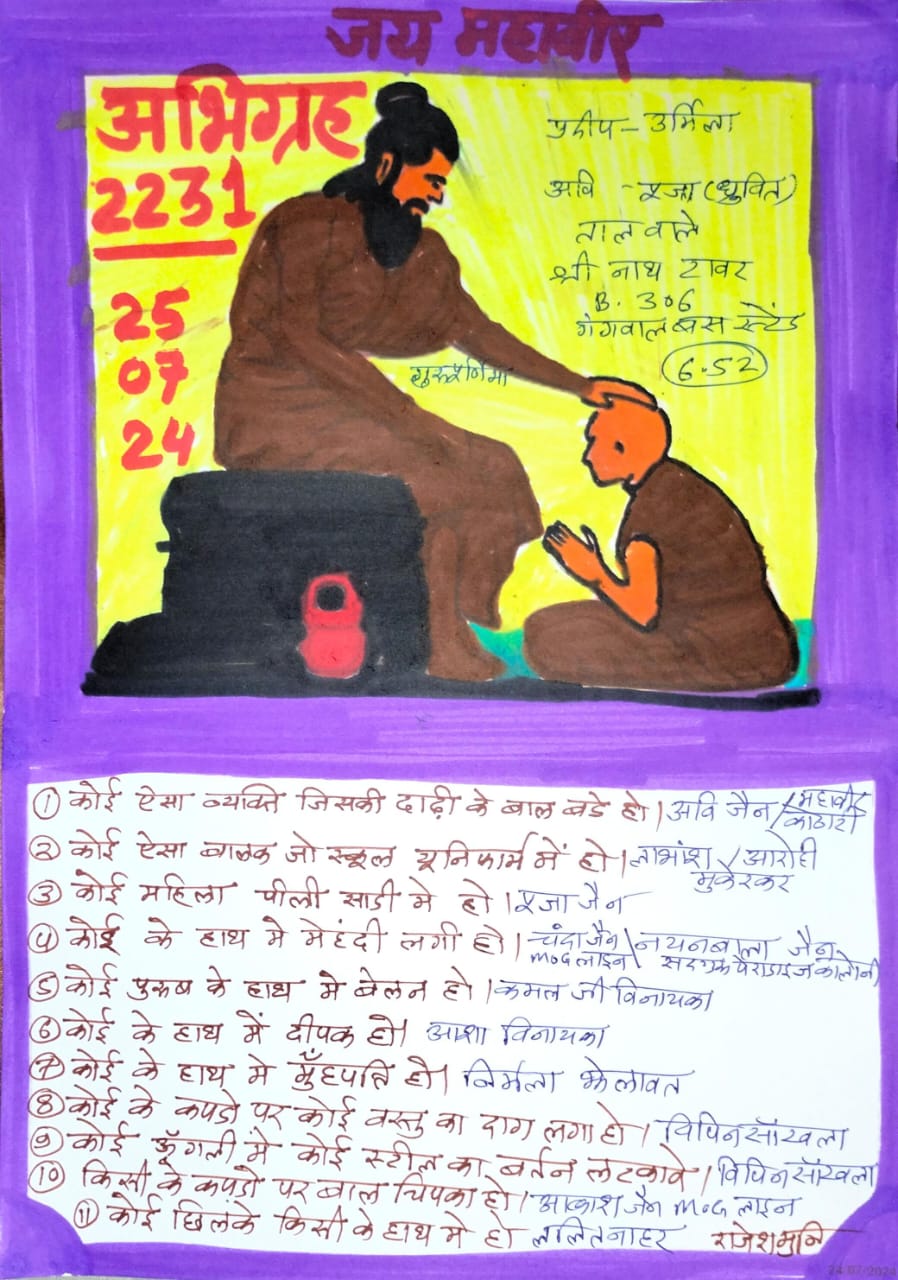 जय महावीर
अभिग्रह
2231
25
07
24
प्रदीप - उर्मिला
अवि - पूजा (ध्रुवित)
ताल वाले
श्री नाथ टावर
B. 306
गंगवाल बस स्टैंड
6.52
गुरुपूर्णिमा
① कोई ऐसा व्यक्ति जिसकी दाढ़ी के बाल बडे हो। अवि जैन / महावीर कोठारी
② कोई ऐसा बालक जो स्कूल यूनिफार्म में हो। लाभांश / आरोही मुकेरकर
③ कोई महिला पीली साडी मे हो। पूजा जैन
④ कोई के हाथ मे मेहंदी लगी हो। चंदा जैन MOG लाइन \ नयनबाला जैन पैराडाइज कालोनी
⑤ कोई पुरुष के हाथ मे बेलन हो। कमल जी विनायका
⑥ कोई के हाथ में दीपक हो। आशा विनायका
⑦ कोई के हाथ मे मुँहपति हो। निर्मला झेलावत
⑧ कोई के कपडो पर कोई वस्तु का दाग लगा हो। विपिन सॉखला
⑨ कोई ऊँगली में कोई स्टील का बर्तन लटकावे। विपिन सॉखला
⑩ किसी के कपडो पर बाल चिपका हो। आकाश जैन MOG लाइन
⑪ कोई छिलके किसी के हाथ मे हो ललित नाहर
राजेश मुनि
24/07/2024